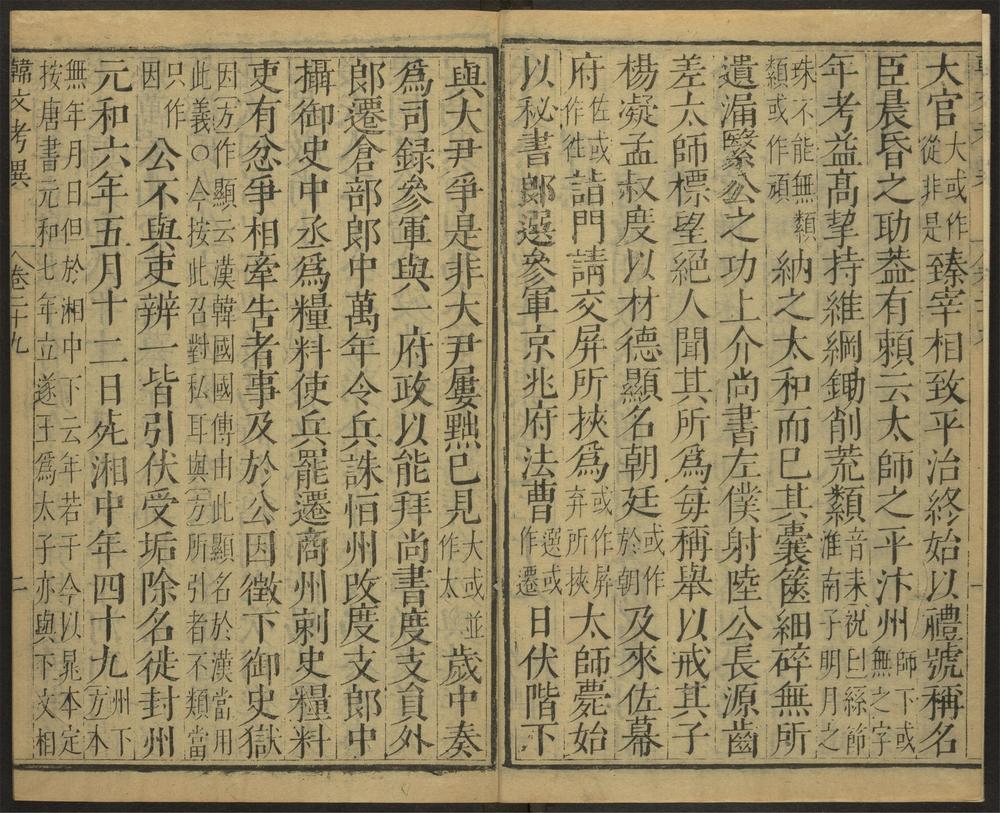 大官大或作從非是臻宰相致平治終始以禮號稱名
臣晨昏之助葢有賴云太師之平汴州師下或無之字
年考益高挈持維綱鋤削荒纇音耒祝曰絲節淮南子明月之
珠不能無纇纇或作頑納之太和而巳其囊篋細碎無所
遺漏繄公之功上介尚書左僕射陸公長源齒
差太師標望絕人聞其所爲每稱舉以戒其子
楊凝孟叔度以材德顯名朝廷或作於朝及來佐幕
府佐或作徃詣門請交屏所挾爲或作屏弃所挾太師薨始
以秘書郞選參軍京兆府法曹選或作遷日伏階下
與大尹爭是非大尹屢黜巳見大或並作太歲中奏
爲司録參軍與一府政以能拜尚書度支負外
郞遷倉部郞中萬年令兵誅恒州改度支郞中
攝御史中丞爲糧料使兵罷遷商州刺史糧料
吏有忿爭相牽告者事及於公因徵下御史獄
因方作顯云漢韓國國傳由此顯名於漢當用此義○今按此召對私耳與方所引者不類當
只作因公不與吏辨一皆引伏受垢除名徙封州
元和六年五月十二日死湘中年四十九州下方本
無年月日但於湘中下云年若干今以晁本定按唐書元和七年立遂王爲太子亦與下文相
韓文考異 卷二十九 二